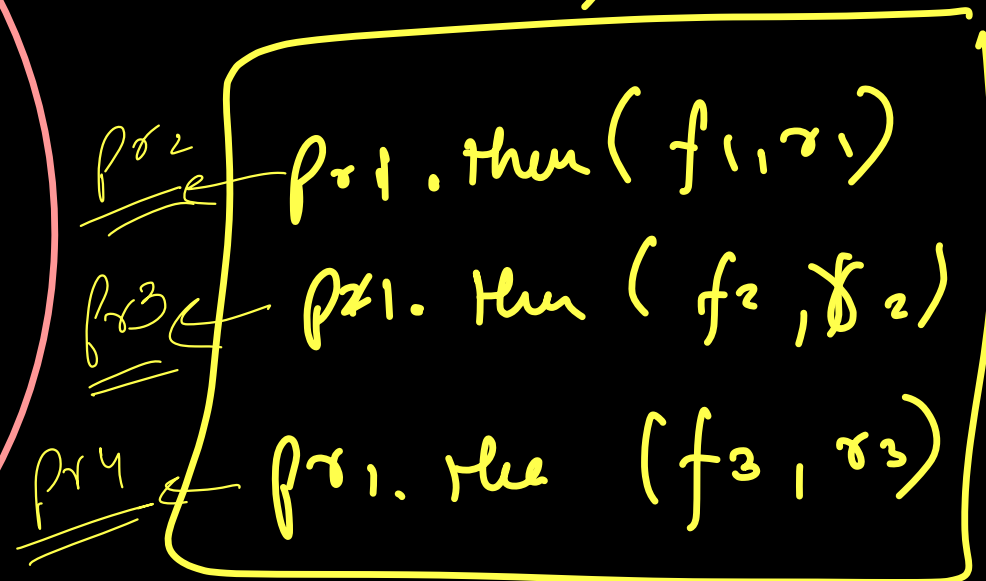 pr2 pr1.then(f1,r1)
pr3 pr1.then(f2,r2)
pr4 pr1.the(f3,r3)